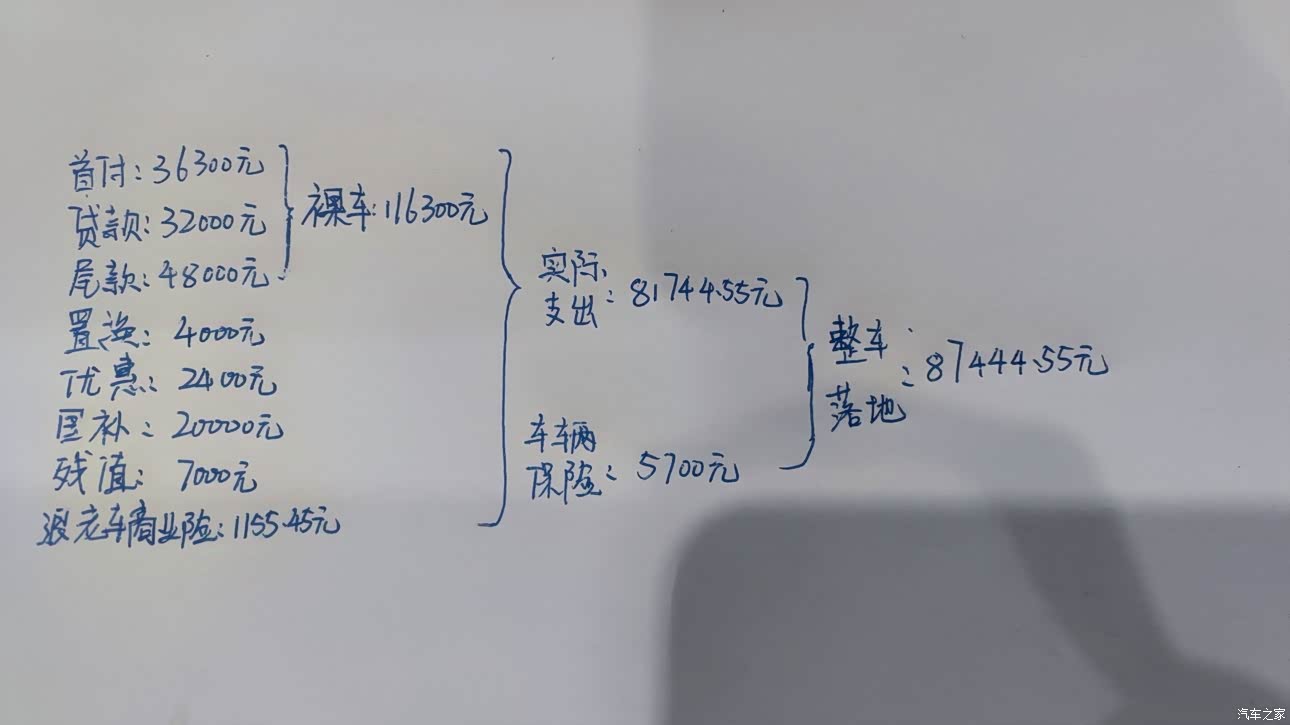 首付：36300元
贷款：32000元
尾款：48000元
裸车：116300元
置换：4000元
优惠：2400元
国补：20000元
残值：7000元
退老车商业险：1155.45元
实际
支出：81744.55元
车辆
保险：5700元
整车
落地：87444.55元
汽车之家